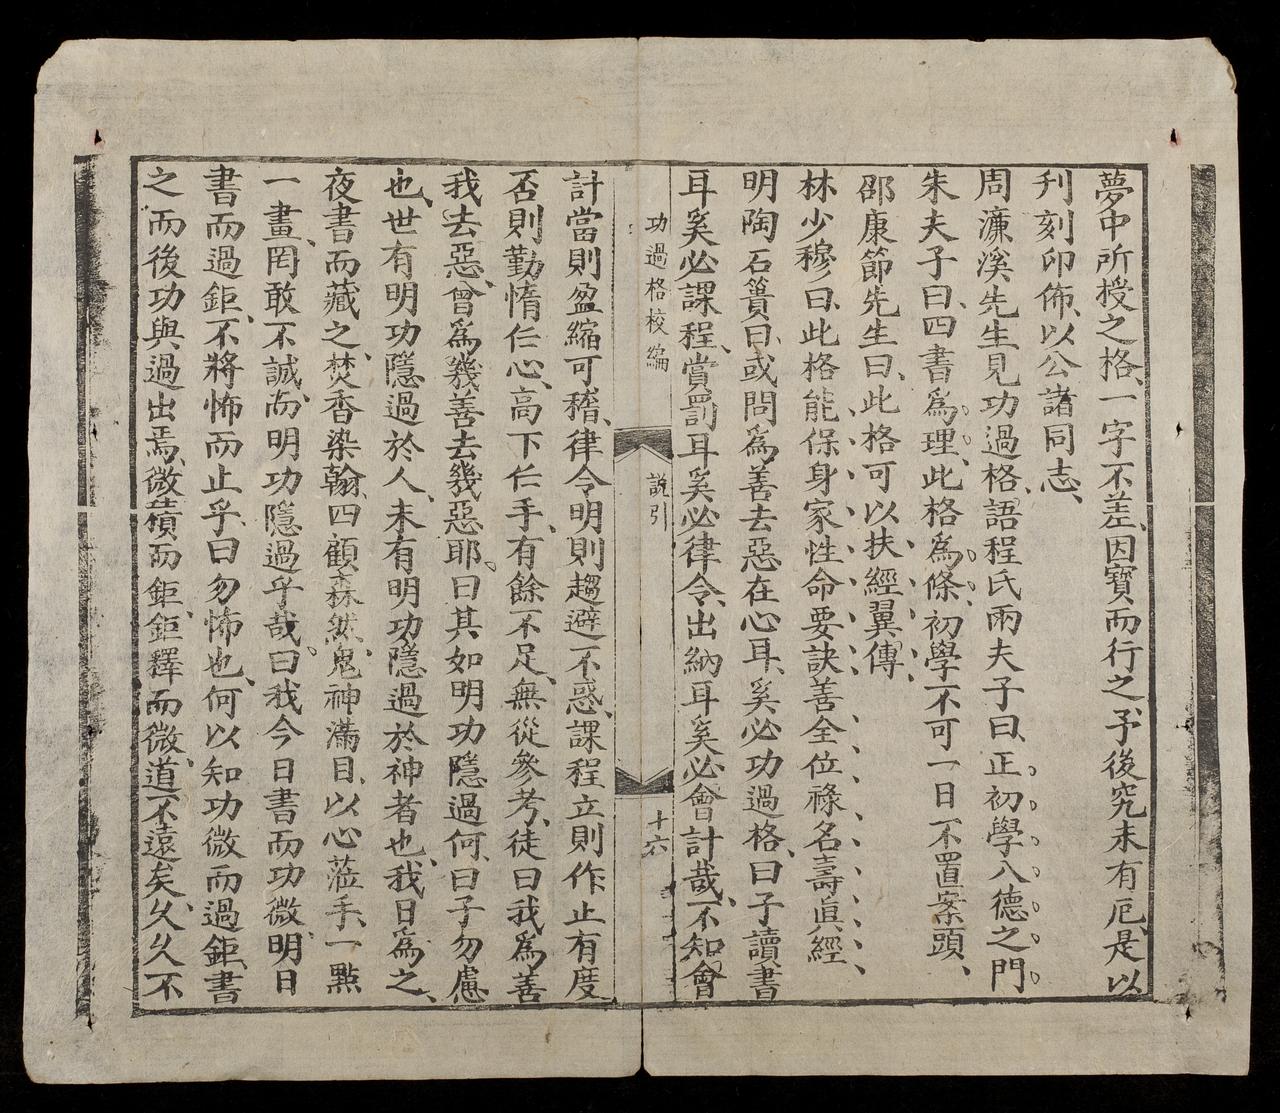 夢中所授之格、一字不差、因寶而行之、予後究末有厄、是以
刋刻印佈、以公諸同志、
周濂溪先生見功過格、語程氏兩夫子曰、正初學入德之門
朱夫子曰、四書為理、此格為條、初學不可一日不置案頭、
邵康節先生曰、此格可以扶經翼傳、
林少穆曰、此格能保身家性命要訣善全位祿名壽眞經、
明陶石簣曰、或問為善去惡在心耳、奚必功過格、曰子讀書
耳奚必課程、賞罰耳奚必律令、出納耳奚必會計哉、不知會
功過格校編
說引
十六
計當則盈縮可稽、律令明則趨避不惑、課程立則作止有度
否則勤惰仁心、高下仁手、有餘不足、無從參考、徒曰我為善
我去惡、曾為幾善去幾惡耶。曰其如明功隱過何、曰子勿慮
也、世有明功隱過於人、未有明功隱過於神者也、我日為之、
夜書而藏之、焚香染翰、四顧森然、鬼神滿目、以心蒞手、一點
一畫、罔敢不誠、尚明功隱過乎哉。曰我今日書而功微、明日
書而過鉅、不將怖而止乎、曰勿怖也、何以知功微而過鉅、書
之而後功與過出焉、微積而鉅、鉅釋而微、道不遠矣、久久不